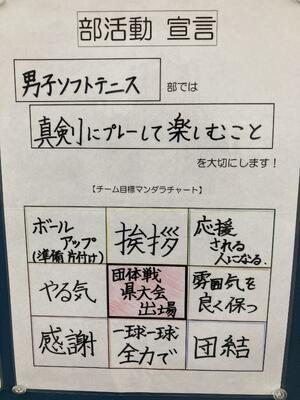 部活動 宣言
男子ソフトテニス 部では
真剣にプレーして楽しむこと
を大切にします！
【チーム目標マンダラチャート】
ボール
アップ
(準備片付け)
挨拶
応援
される
人になる.
やる気
団体戦
県大会
出場
雰囲気を
良く保つ
感謝
一球一球
全力で
団結